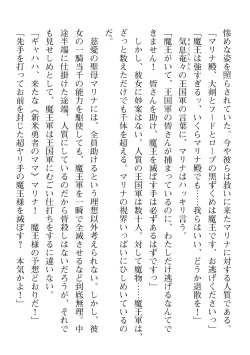 惨めな姿を照らされていた。今や彼らは救いに来たマリナに対する人質である。
「マリナ殿、大剣とフードとローブの黒ずくめは魔王です、お逃げください……っ」
「魔王は強すぎるッ、いくらマリナ殿でも……我らはいい、どうか退散を！」
気息奄々の王国軍の言葉に、マリナはハッキリ言う。
「魔王がいて、王国軍の皆さんが捕まっているのに、わたしだけ逃げるなんてで
きません！　皆さんを助け、魔王を滅ぼす手は必ずあるはずですっ」
しかし、彼女に妙案はない。人質の王国軍は数十人、対して魔物……魔王軍は、
ざっと数えただけでも千体を超える。マリナの視界いっぱいにひしめいている。
慈愛の聖母マリナには、全員助けるという理想以外考えられない。しかし、彼
女の一騎当千の能力を駆使しても、魔王軍を一瞬で全滅させるなど到底無理。中
途半端に仕掛けた途端、人質にしているのだから皆殺しはないだろうが、それで
も見せしめとして、魔王軍は王国軍にむごい仕打ちをするに違いない。
「ギャハハ、来たな《新米勇者のママ》マリナ！　魔王様の予想どおりだ！」
「先手を打ってお前を封じた超ヤリ手の魔王様を滅ぼす？　本気かよ！」